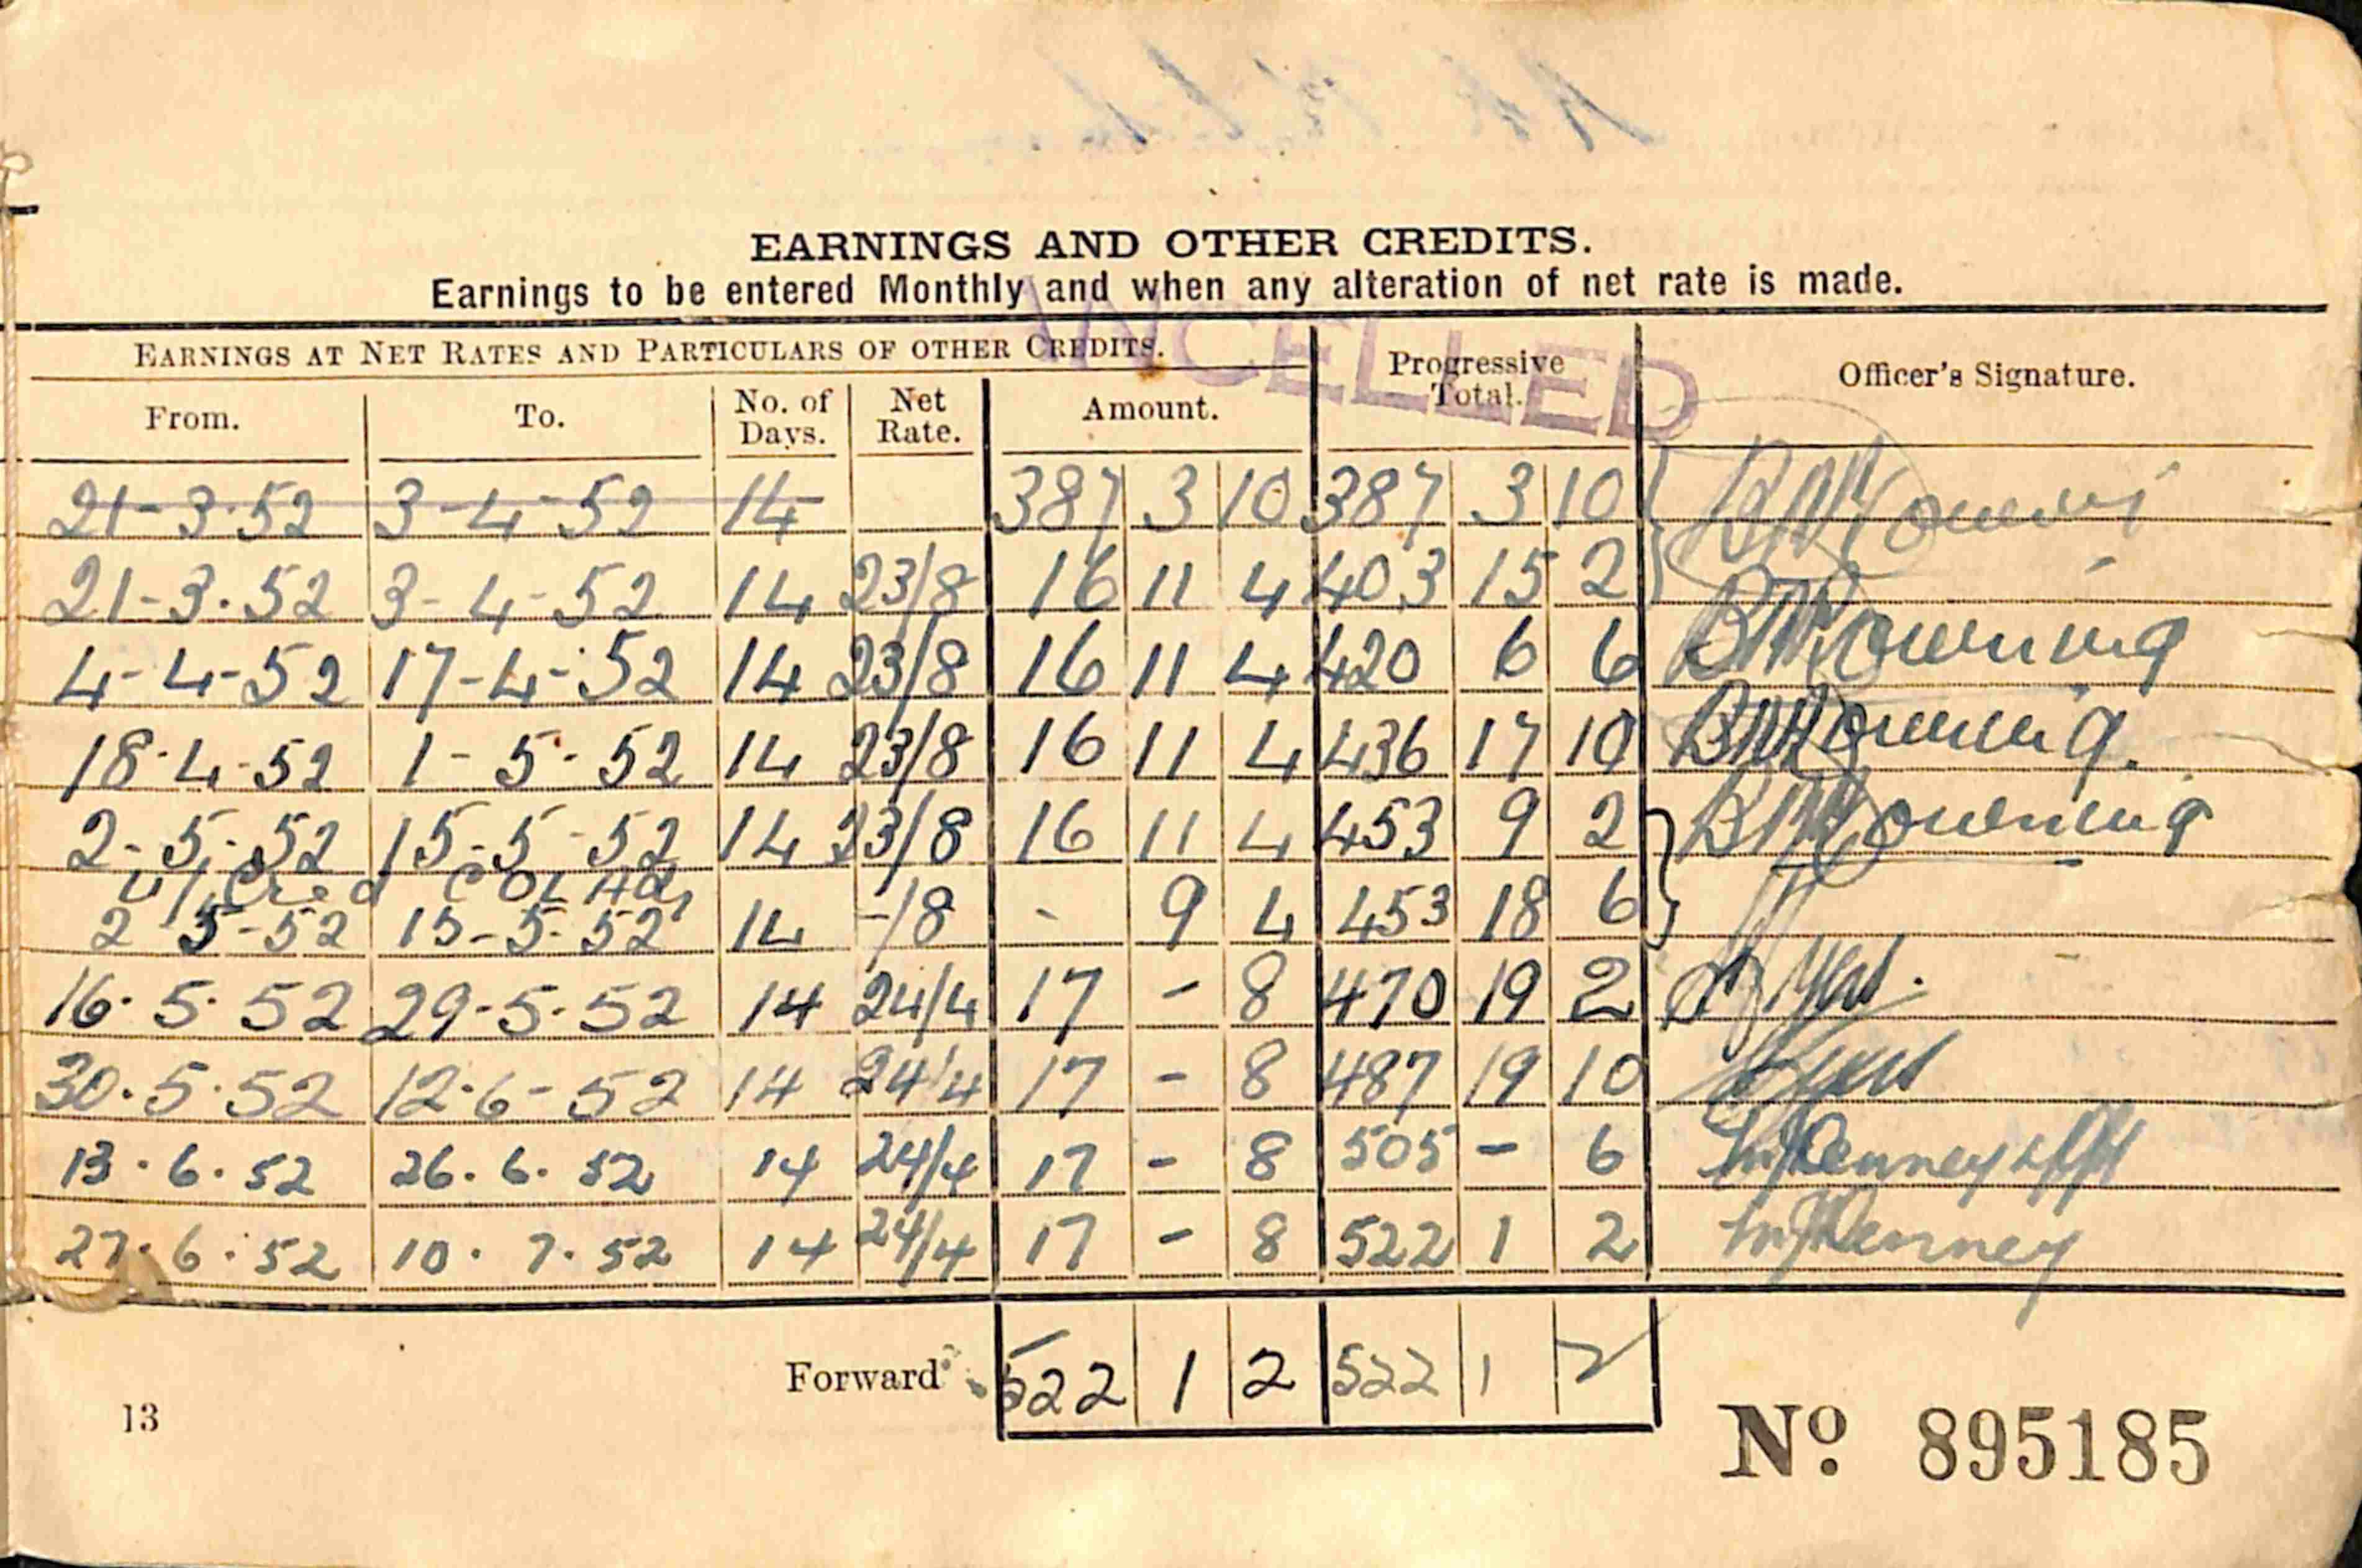 EARNINGS AND OTHER CREDITS.
Earnings to be entered Monthly and when any alteration of net rate is made.
ANCELLED
EARNINGS AT NET RATES AND PARTICULARS OF OTHER CREDITS. Progressive Total. Officer's Signature.
From. To. No. of Days. Net Rate. Amount.
21-3-52 3-4-52 14 387 3 10 387 3 10
21-3-52 3-4-52 14 23/8 16 11 4 403 15 2
4-4-52 17-4-52 14 23/8 16 11 4 420 6 6
18-4-52 1-5-52 14 23/8 16 11 4 436 17 10
2-5-52 15-5-52 14 23/8 16 11 4 453 9 2
U/Cred COL Adj
2-5-52 15-5-52 14 -/8 - 9 4 453 18 6
16.5.52 29-5-52 14 24/4 17 - 8 470 19 2
30.5.52 12.6-52 14 24/4 17 - 8 487 19 10
13.6.52 26.6.52 14 24/4 17 - 8 505 - 6
27.6.52 10.7.52 14 24/4 17 - 8 522 1 2
Forward 522 1 2 522 1 2
13
No. 895185